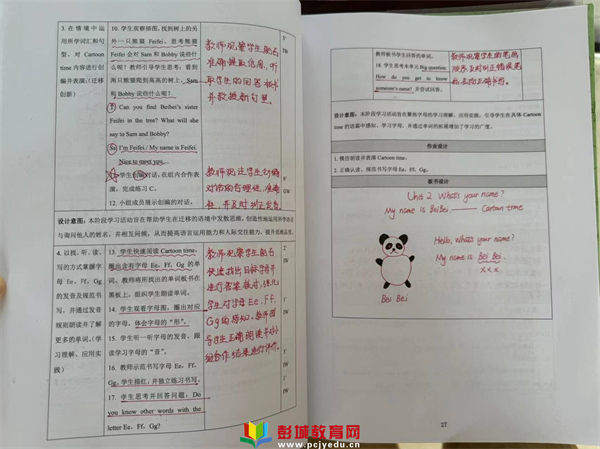 3. 在情境中运
用所学词汇和句
型，对 Cartoon
time 内容进行创
编并表演。(迁移
创新)
10. 学生观察插图，找到树上的另
外一只熊猫 Feifei，思考熊猫
Feifei 会对 Sam 和 Bobby 说些什
么呢？教师引导学生思考：看到
两只熊猫爬到高高的树上，Sam
和 Bobby 说些什么呢？
T: Can you find Beibei's sister
Feifei in the tree? What will she
say to Sam and Bobby?
Ss: I'm Feifei./ My name is Feifei.
Nice to meet you.
11. 学生创编对话，在组内合作表
演，完成练习 C。
12. 小组成员展示创编的对话。
教师观察学生能否
准确提取信息，听
取学生的回答
教师观
对话的合理性、准确
性，并及时
5'
IW
6'
GW
设计意图：本阶段学习活动旨在帮助学生在迁移的语境中发散思维，创造性地运用所学语言
与询问他人的姓名，并相互问候，从而提高语言运用能力和人际交往能力，提升思维品质。
4. 以找、听、读、
写的方式掌握字
母 Ee、Ff、Gg
的发音及规范书
写，并通过发音
规则朗读并了解
更多的单词。(学
习理解、应用实
践)
13. 学生快速阅读 Cartoon time，
圈出含有字母 Ee、Ff、Gg 的单
词。教师将用找出的单词板书在
黑板上，组织学生朗读单词。
14. 学生观看字母图，圈出对应的
字母，体会字母的“形”。
15. 学生听一听字母的发音，跟
读学习字母的“音”。
16. 教师示范书写字母 Ee、Ff、
Gg，学生描红，并独立练习书写。
17. 学生思考并回答问题：Do
you know other words with the
letter Ee, Ff, Gg?
教师观察学生能否
快速找出目标字母并
进行答案核对，
学生对字母 Ee、Ff、
Gg 的感知。教师指
导学生正确朗读
合作结果进行评价。
2'
IW
1'
IW
1'
IW
3'
IW
3'
IW
教师板书学生回答的单词。
18. 学生思考本单元 Big question:
How do you get to know
someone's name? 并尝试回答。
教师观察学生的笔画
顺序，及时纠正错误笔
1'
IW
设计意图：本阶段学习活动旨在聚焦字母的学习理解、应用实践，引导学生在具体 Cartoon
time 的语篇中感知、学习字母，并通过单词的拓展增加了学习的广度。
作业设计
1. 模仿朗读并表演 Cartoon time。
2. 正确认读、规范书写字母 Ee、Ff、Gg。
板书设计
Unit 2 What's your name?
My name is BeiBei —— Cartoon time
Hello, What's your name?
My name is Bei Bei.
x x x
Bei Bei
27
彭城教育网
www.pcjyedu.cn